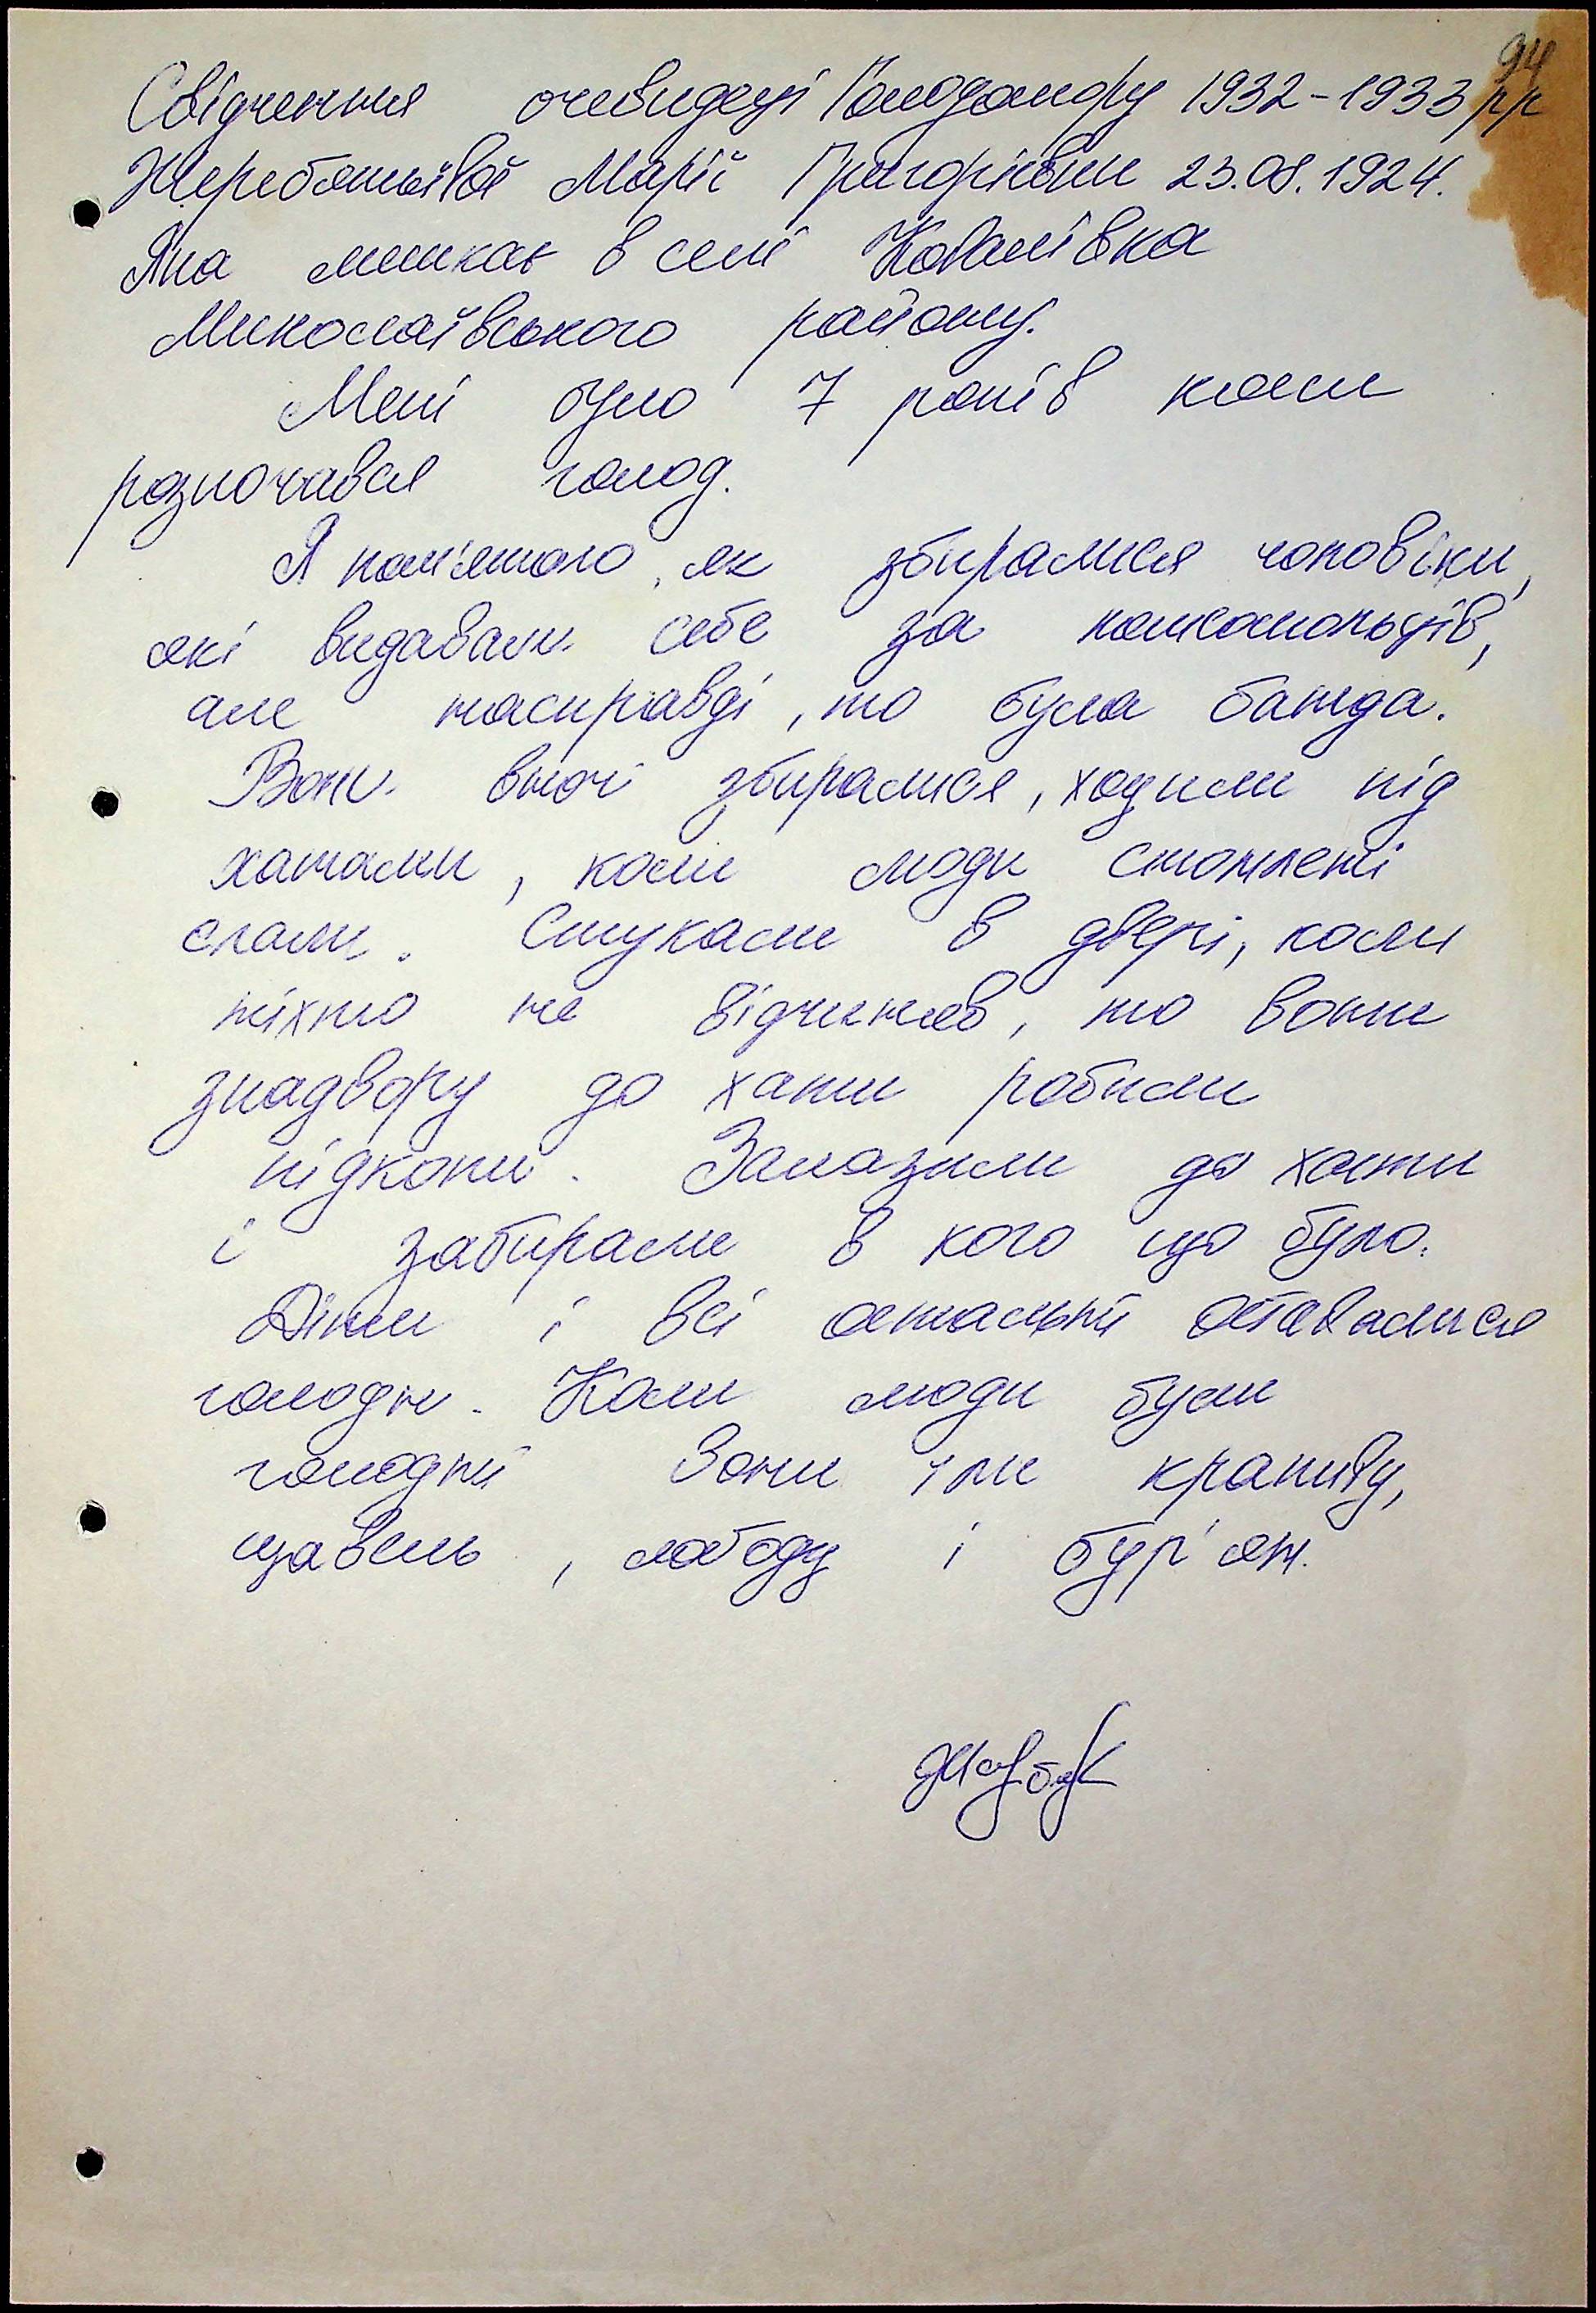 94
Свідчення очевидеці Голодомору 1932-1933 рр
Жеребятьєвої Марії Григорівни 23.08.1924.
Яка мешкає в селі Ковалівка
Миколаївського району.
Мені було 7 років коли
розпочався голод.
Я пам'ятаю, як збиралися чоловіки,
які видавали себе за комсомольців,
але насправді, то була банда.
Вони вночі збиралися, ходили під
хатами, коли люди стомлені
спали. Стукали в двері, коли
ніхто не відчиняв, то вони
знадвору до хати робили
підкопи. Залазили до хати
і забирали в кого що було.
Діти і всі остальні оставалися
голодні. Коли люди були
голодні вони їли крапиву,
щавель, лободу і бур'ян.